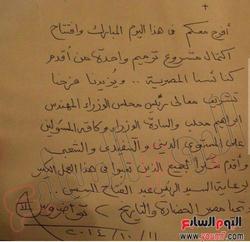 أفرح معكم فى هذا اليوم المبارك وافتتاح
اكمال مشروع ترميم واحدة من أقدم
كنائسنا المصرية .. ويزيدنا فرحنا
تشريف معالى رئيس مجلس الوزراء المهندس
ابراهيم محلب والسادة الوزراء وكافة المسئولين
على المستوى الدينى والتنفيذى والشعبى
وأقدم شكراً لجميع الذين تعبوا فى هذا العمل الكبير
برعاية السيد الرئيس عبد الفتاح السيسى
مصر الحضارة والتاريخ
٢٠١٤/١٠/١١
اليوم السابع